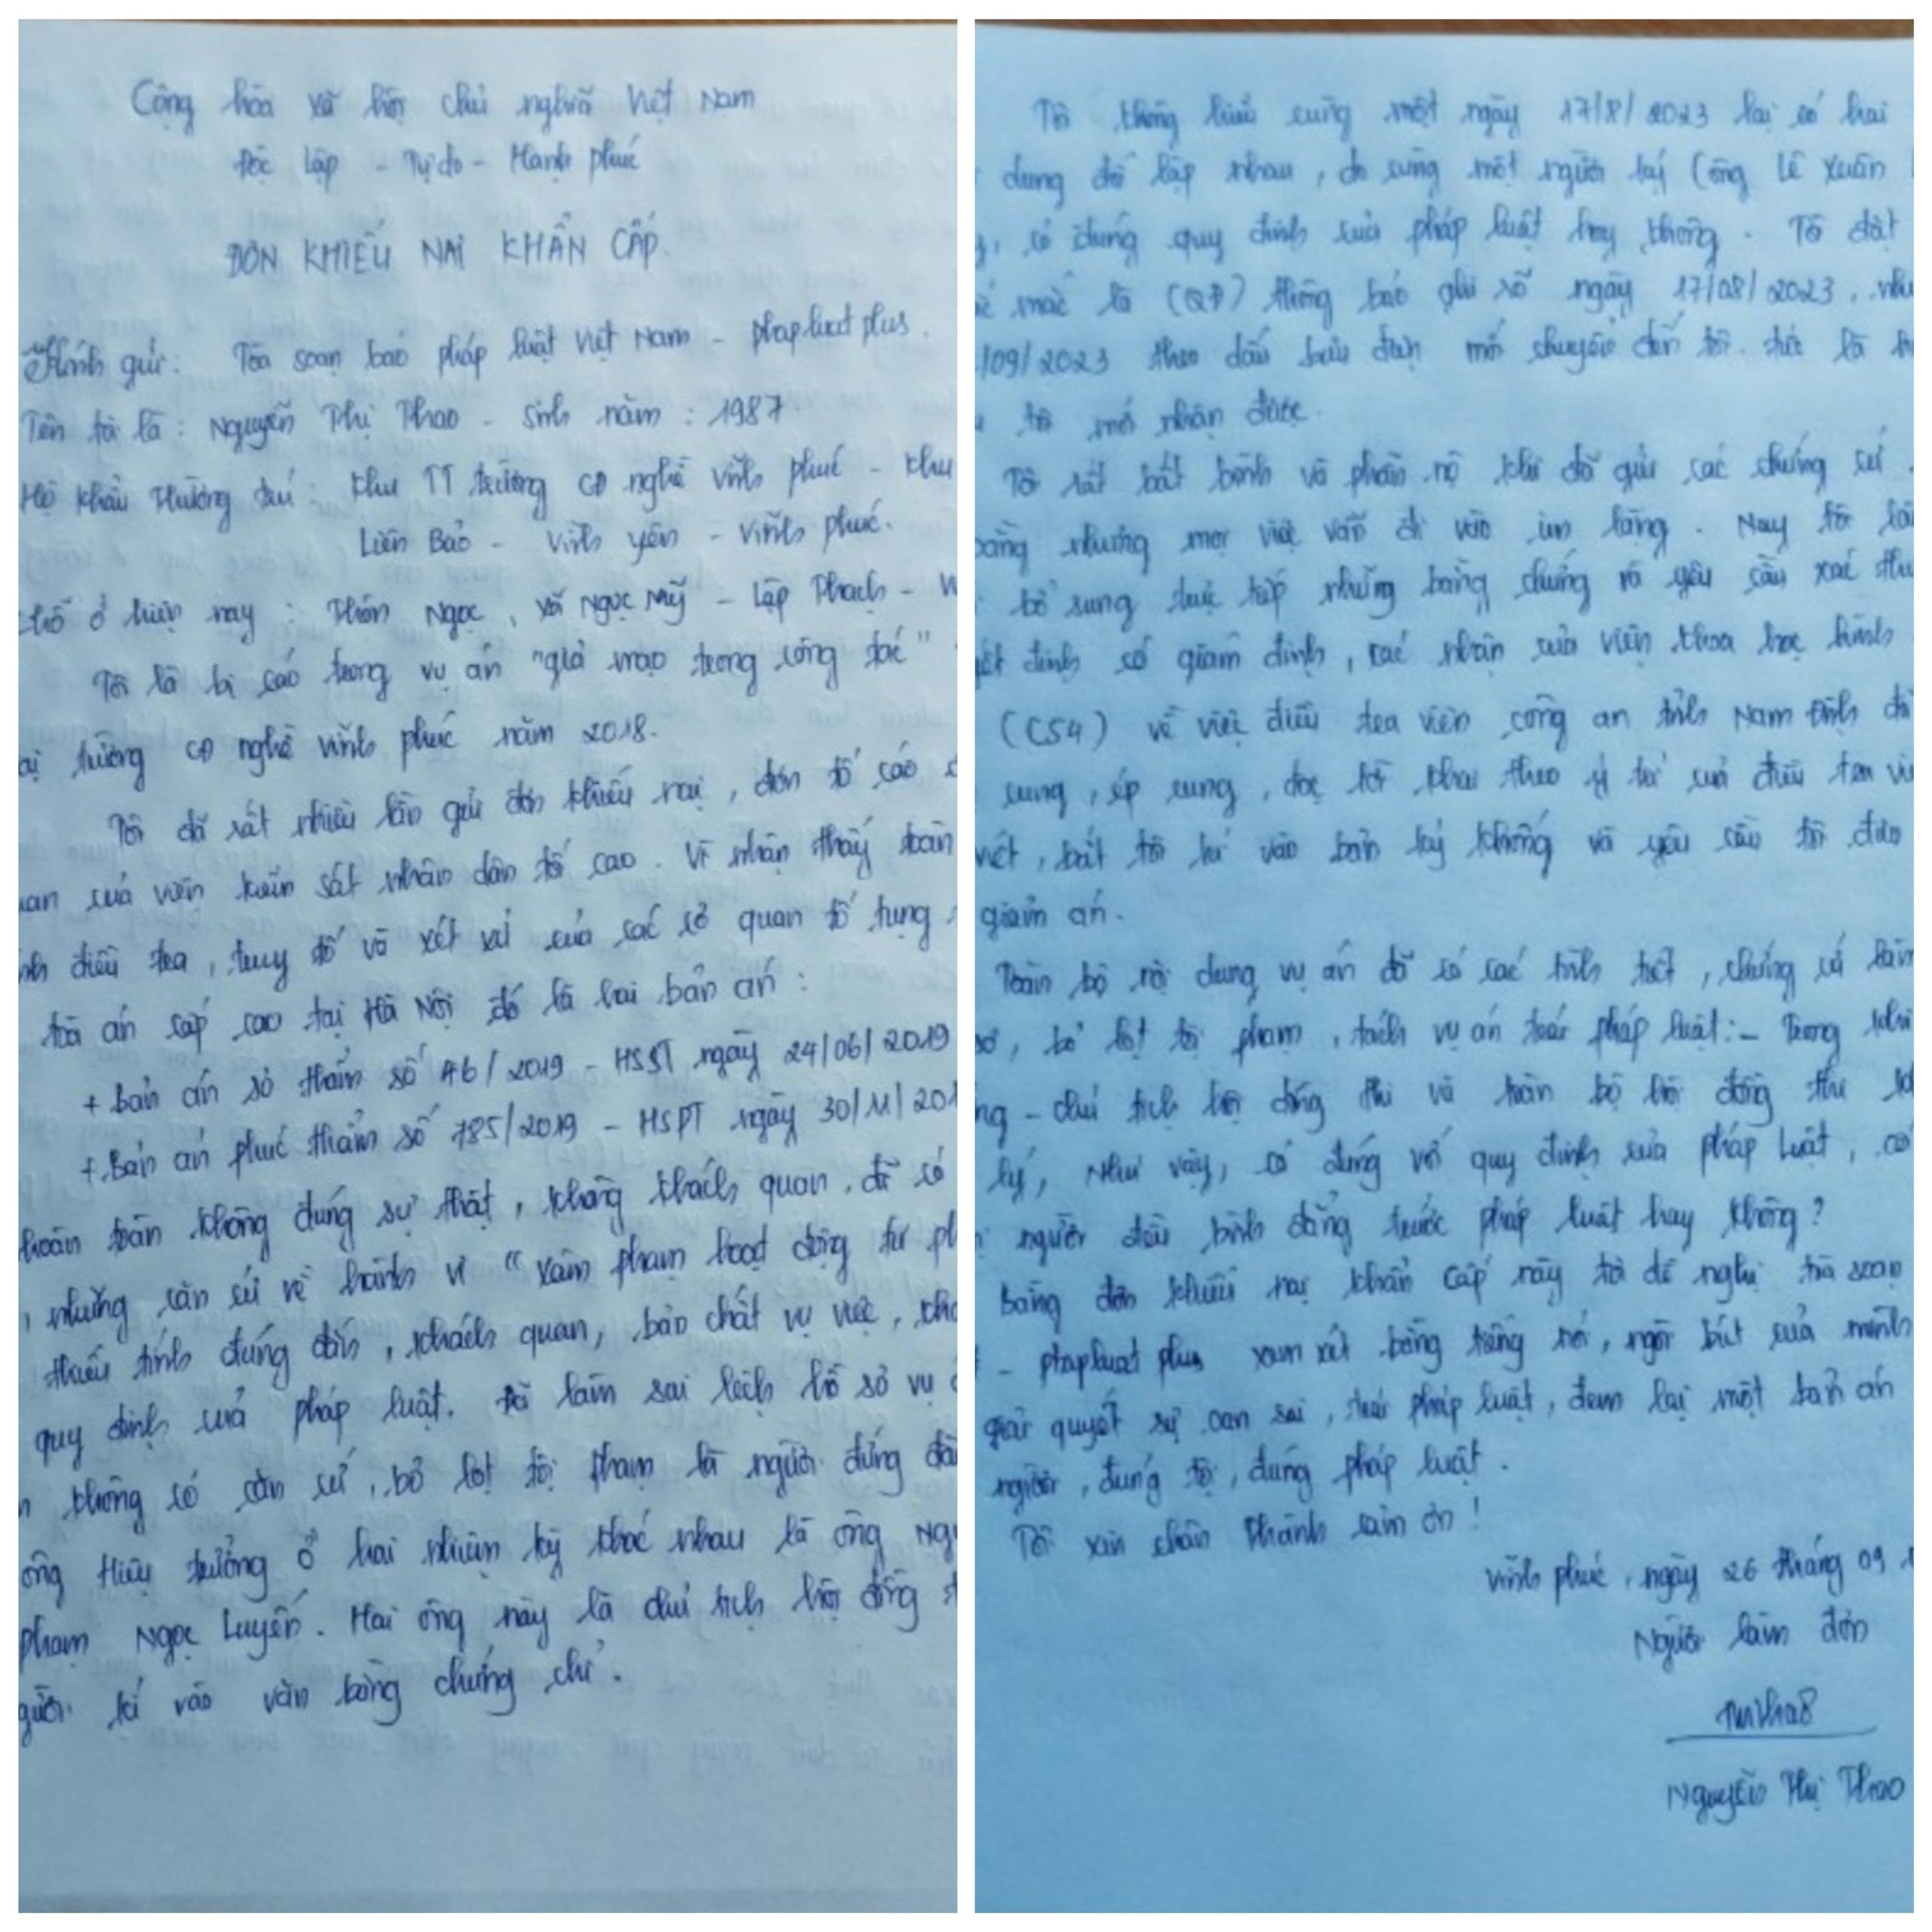 Cộng hòa xã hội chủ nghĩa Việt Nam
Độc lập - Tự do - Hạnh phúc
ĐƠN KHIẾU NẠI KHẨN CẤP.
Kính gửi: Tòa soạn báo pháp luật Việt Nam - phapluat plus.
Tên tôi là: Nguyễn Thị Thao - Sinh năm: 1987
Hộ khẩu thường trú: Khu TT trường CĐ nghề Vĩnh phúc - Khu
Liên Bảo - Vĩnh Yên - Vĩnh phúc.
chỗ ở hiện nay: Thôn Ngọc, xã Ngọc Mỹ - Lập Thạch -
Tôi là bị cáo trong vụ án "giả mạo trong công tác"
ại trường CĐ nghề Vĩnh phúc năm 2018.
Tôi đã rất nhiều lần gửi đơn khiếu nại, đơn tố cáo
quan của viện kiểm sát nhân dân tối cao. Vì nhận thấy toàn
điều tra, truy tố và xét xử của các cơ quan tố tụng
tòa án cấp cao tại Hà Nội đó là hai bản án:
+ Bản án sơ thẩm số 46/2019 - HSST ngày 24/06/2019
+ Bản án phúc thẩm số 785/2019 - HSPT ngày 30/11/201
hoàn toàn không đúng sự thật, không khách quan, đã có
những căn cứ về hành vi "xâm phạm hoạt động tư ph
thiếu tính đúng đắn, khách quan, bản chất vụ việc,
quy định của pháp luật. Đã làm sai lệch hồ sơ vụ
không có căn cứ, bỏ lọt tội phạm là người đứng đầ
ông Hiệu trưởng ở hai nhiệm kỳ khác nhau là ông Ngu
phạm Ngọc Luyến. Hai ông này là chủ tịch hội đồng
gười kí vào văn bằng chứng chỉ.
Tôi không hiểu cùng một ngày 17/8/2023 lại có hai
dung đối lập nhau, do cùng một người ký (ông Lê Xuân
có đúng quy định của pháp luật hay không. Tôi đặt
mắc là (QĐ) thông báo ghi số ngày 17/08/2023,
/09/2023 theo dấu bưu điện mới chuyển đến tôi. tức là
tôi mới nhận được.
Tôi rất bất bình và phẫn nộ khi đã gửi các chứng cứ
bằng nhưng mọi việc vẫn đi vào im lặng. Nay tôi
bổ sung trực tiếp những bằng chứng và yêu cầu xác
định có giám định, xác nhận của viện khoa học hình
(C54) về việc điều tra viên công an tỉnh Nam Định đã
cung, ép cung, đọc lời khai theo ý trí của điều tra vi
viết, bắt tôi kí vào bản ký khống và yêu cầu tôi đưa
giảm án.
Toàn bộ nội dung vụ án đã có các tình tiết, chứng cứ
bỏ lọt tội phạm, tách vụ án trái pháp luật: - Trong khi
ng - chủ tịch hội đồng thi và toàn bộ hội đồng thi
lý, Như vậy, có đúng với quy định của pháp luật, có
người đều bình đẳng trước pháp luật hay không?
Bằng đơn khiếu nại khẩn cấp này tôi đề nghị tòa soạn
- phapluat plus xem xét bằng tiếng nói, ngòi bút của mình
giải quyết sự oan sai, trái pháp luật, đem lại một bản án
người, đúng tội, đúng pháp luật.
Tôi xin chân thành cảm ơn!
Vĩnh phúc, ngày 26 tháng 09
Người làm đơn
Nguyễn Thị Thao